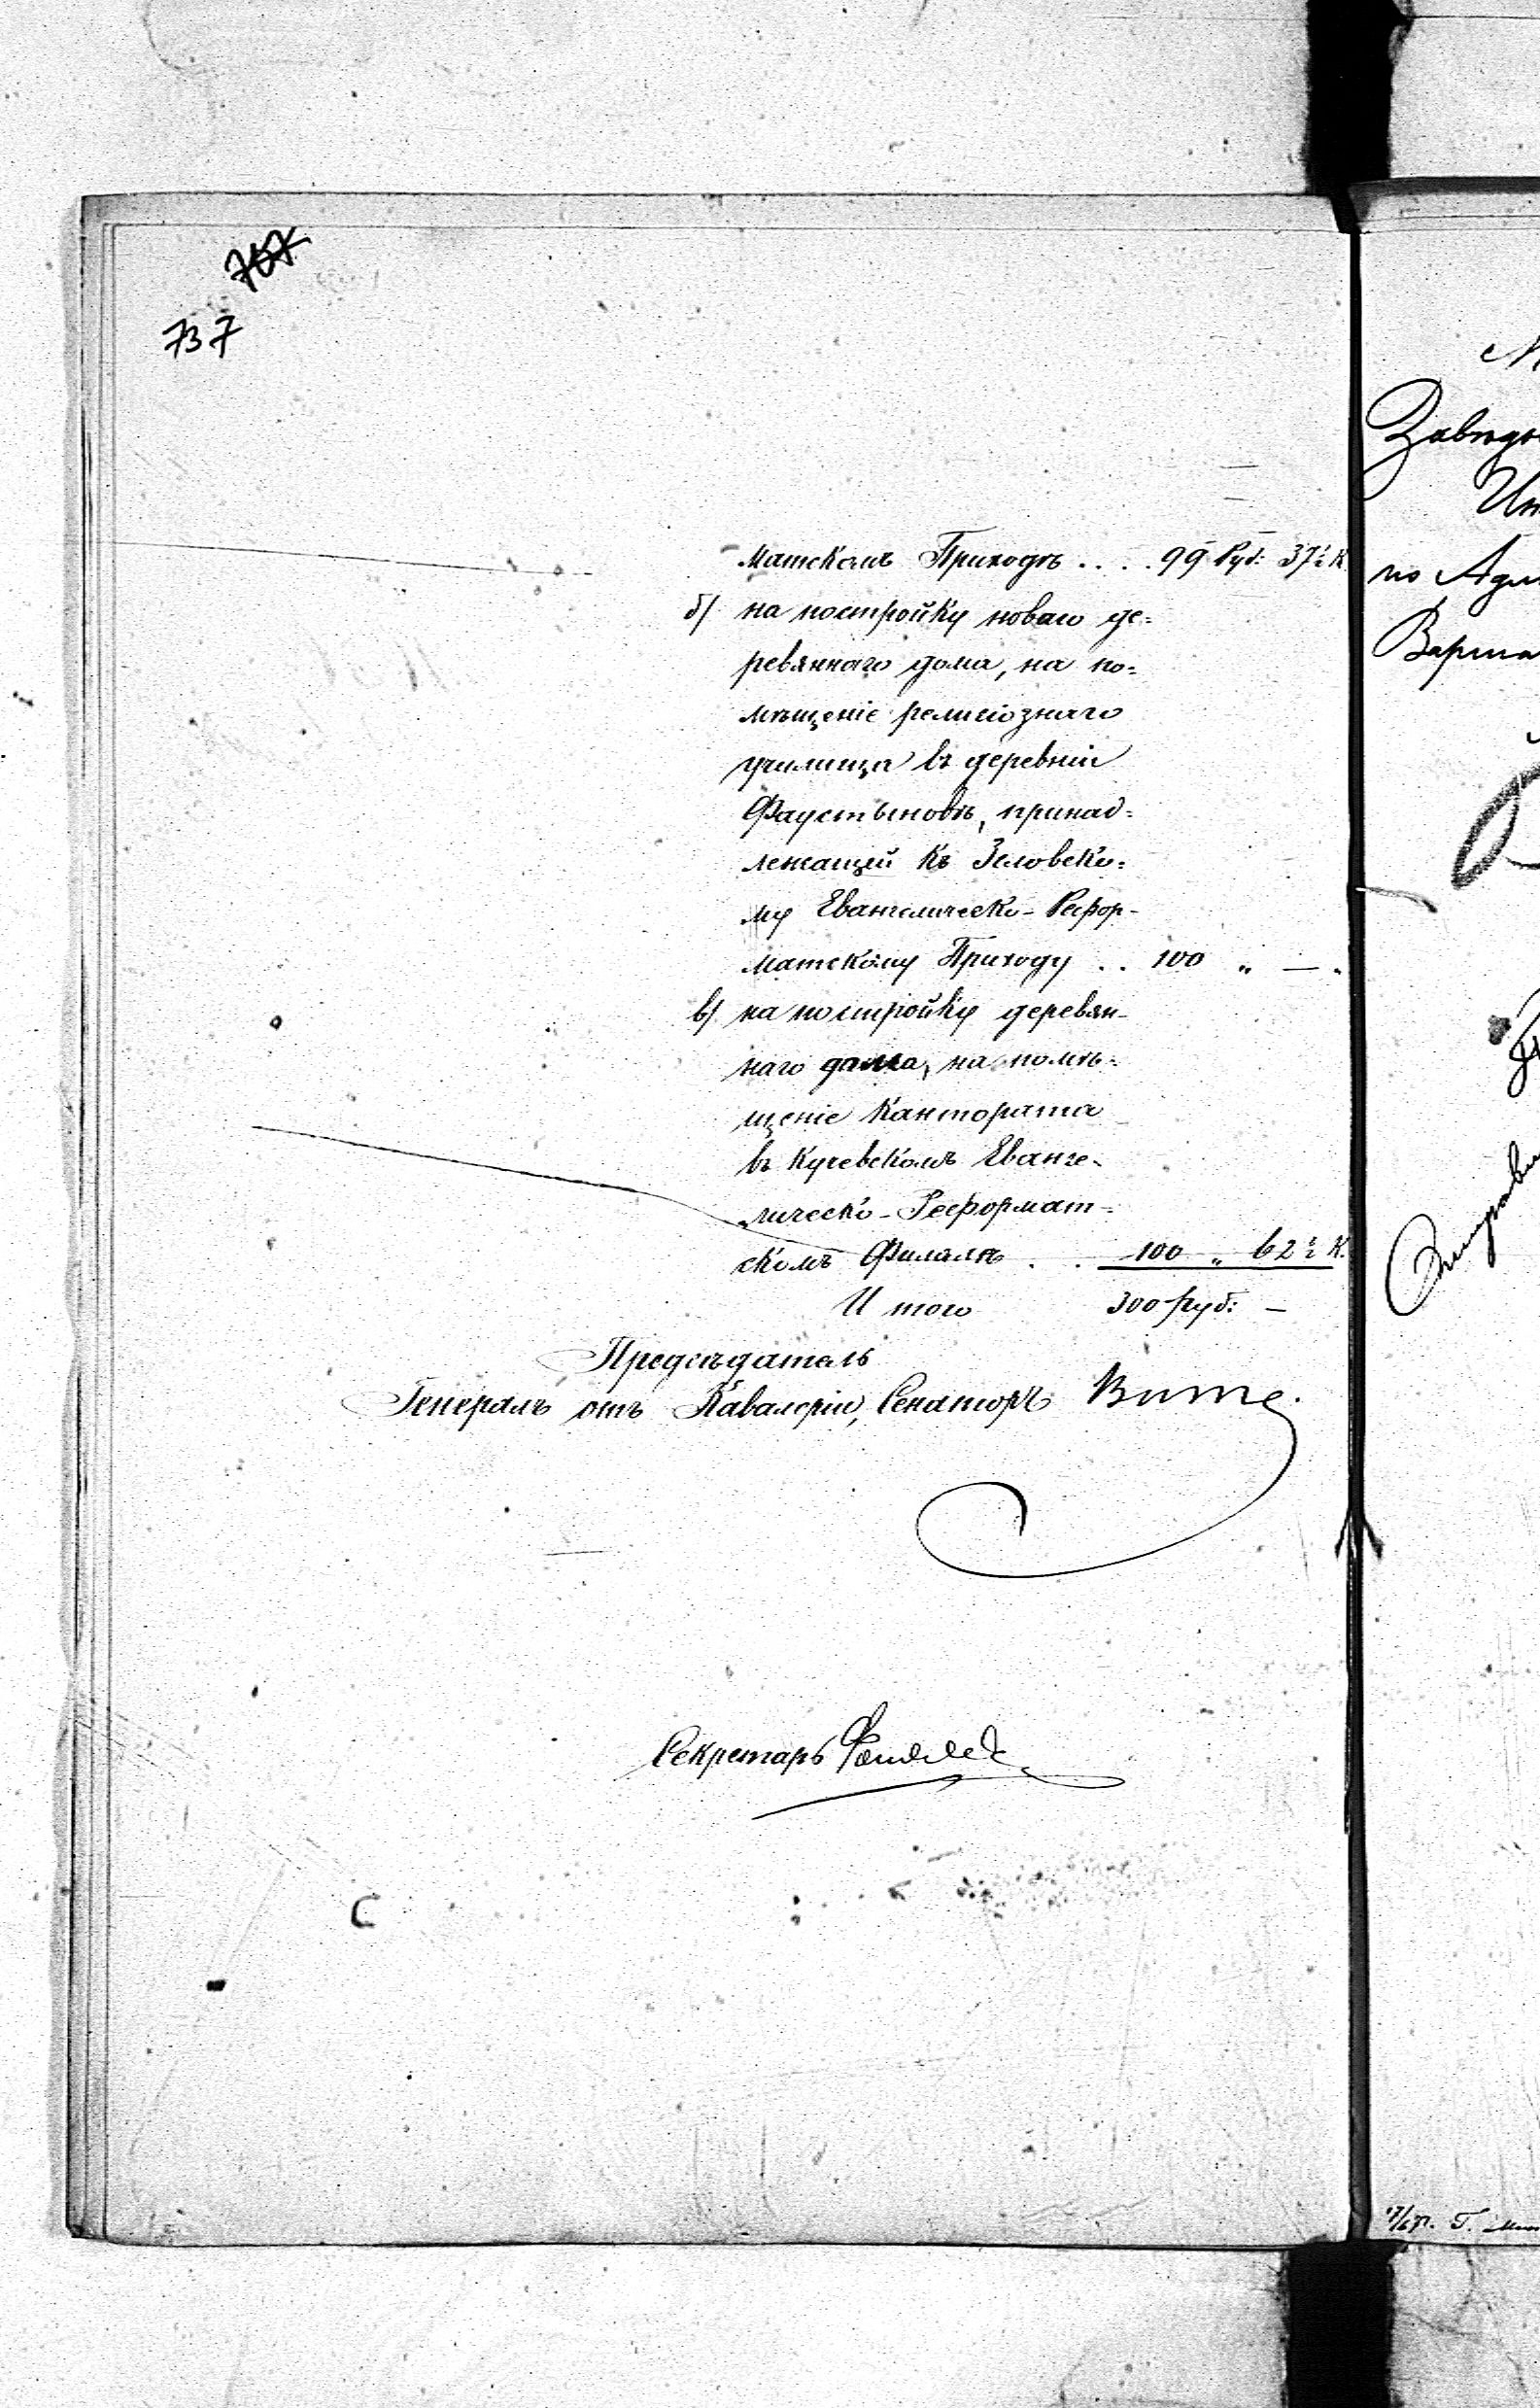 767
737
матскомъ Приходѣ . . . . 99 Руб: 37½ К.
б) на постройку новаго де=
ревяннаго дома, на по=
мѣщеніе религіознаго
училища въ деревни
Фаустыновѣ, принад=
лежащей къ Зеловско=
му Евангелическо-Рефор-
матскому Приходу . . 100 „ — „
в) на постройку деревян-
наго дома, на помѣ=
щеніе Кантората
въ Кучевскомъ Еванге-
лическо-Реформат=
скомъ Филялѣ . . 100 „ 62½ К.
И того 300 руб: —
Предсѣдатель
Генералъ отъ Кавалеріи, Сенаторъ Витте.
Секретарь
Завѣды
по
Варша